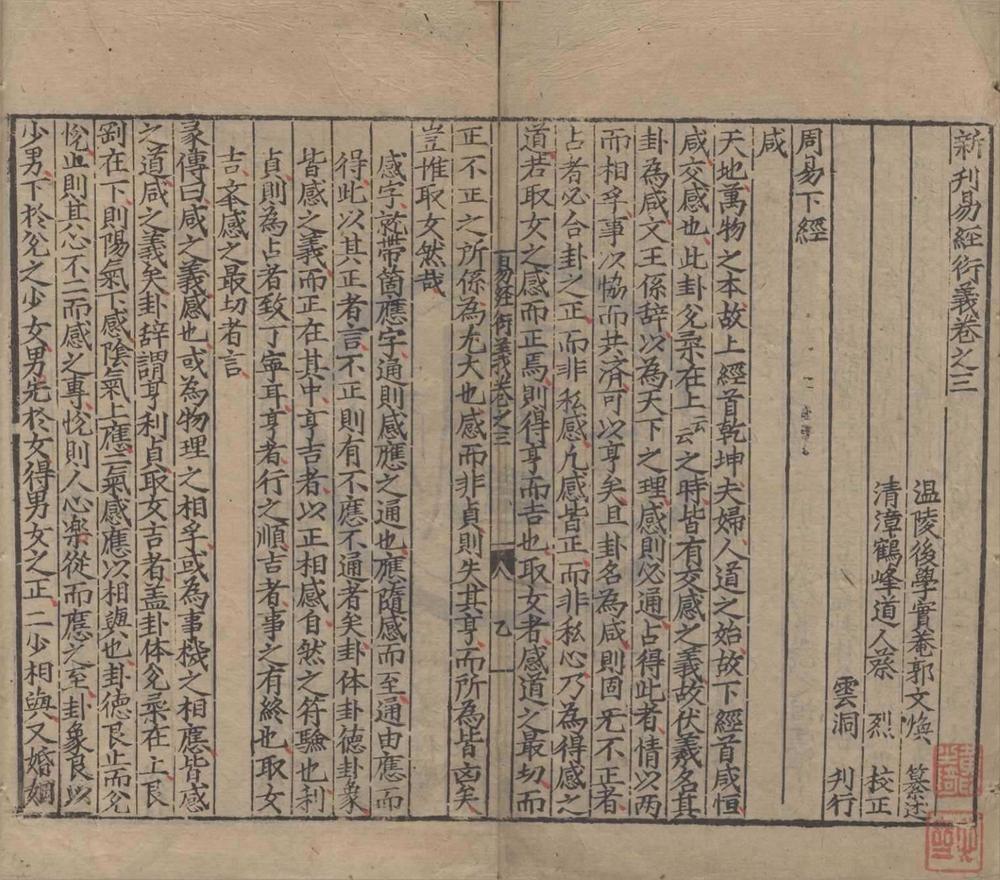 新刊易經衍義卷之三
温陵後學實菴郭文煥 纂述
清漳鶴峰道人蔡 烈 校正
雲洞 刋行
周易下經
咸
天地萬物之本故上經首乾坤夫婦人道之始故下經首咸恒
咸交感也此卦兊乘在上云云之時皆有交感之義故伏羲名其
卦為咸文王係辞以為天下之理感則必通占得此者情以两
而相孚事以恊而共済可以亨矣且卦名為咸則固旡不正者
占者必合卦之正而非私感凡感皆正而非私心乃為得感之
道若取女之感而正焉則得亨而吉也取女者感道之最切而
正不正之所係為尤大也感而非貞則失其亨而所為皆凶矣
豈惟取女然哉
感字就带箇應字通則感應之通也應隨感而至通由應而
得此以其正者言不正則有不應不通者矣卦体卦德卦象
皆感之義而正在其中亨吉者以正相感自然之符驗也利
貞則為占者致丁寧耳亨者行之順吉者事之有終也取女
吉本感之最切者言
彖傳曰咸之義感也或為物理之相孚或為事機之相應皆感
之道咸之義矣卦辞謂亨利貞取女吉者盖卦体兊乘在上艮
剛在下則陽氣下感陰氣上應二氣感應以相與也卦德艮止而兊
悅止則其心不二而感之專悅則人心樂從而應之至卦象艮以
少男下於兊之少女男先於女得男女之正二少相與又婚姻
易經衍義卷之三
八 乙 一